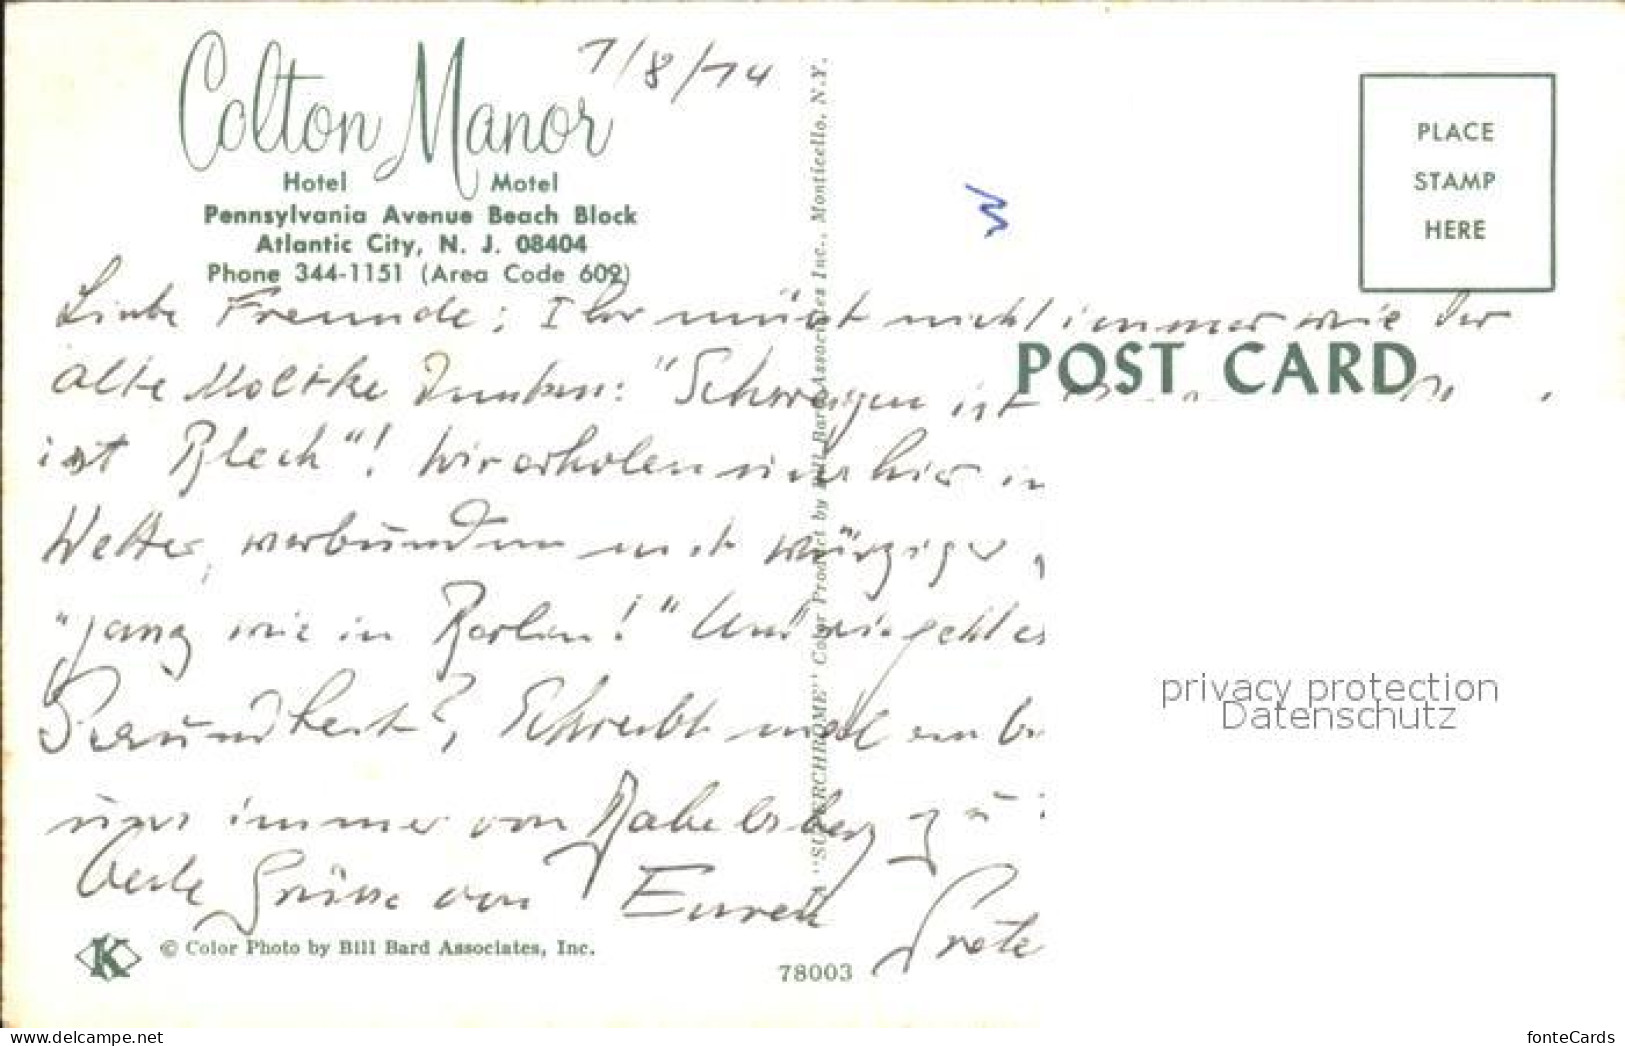 Colton Manor
7/8/74
Hotel Motel
Pennsylvania Avenue Beach Block
Atlantic City, N. J. 08404
Phone 344-1151 (Area Code 609)
PLACE
STAMP
HERE
POST CARD
Liebe Freunde; Ihr müsst nicht immer wie der
alte Moltke denken: "Schweigen ist
ist Blech"! Wir erholen uns hier in
Wetter, verbunden mit würziger
"gang wie in Berlin!" Und wie geht es
Gesundheit?, Schreibt mal ein
uns immer von Babelsberg zu
Beste Grüsse von Euren
Grete
"SUPERCHROME" Color Product by Bill Bard Associates Inc., Monticello, N.Y.
K
© Color Photo by Bill Bard Associates, Inc.
78003
privacy protection
Datenschutz
www.delcampe.net
fonteCards